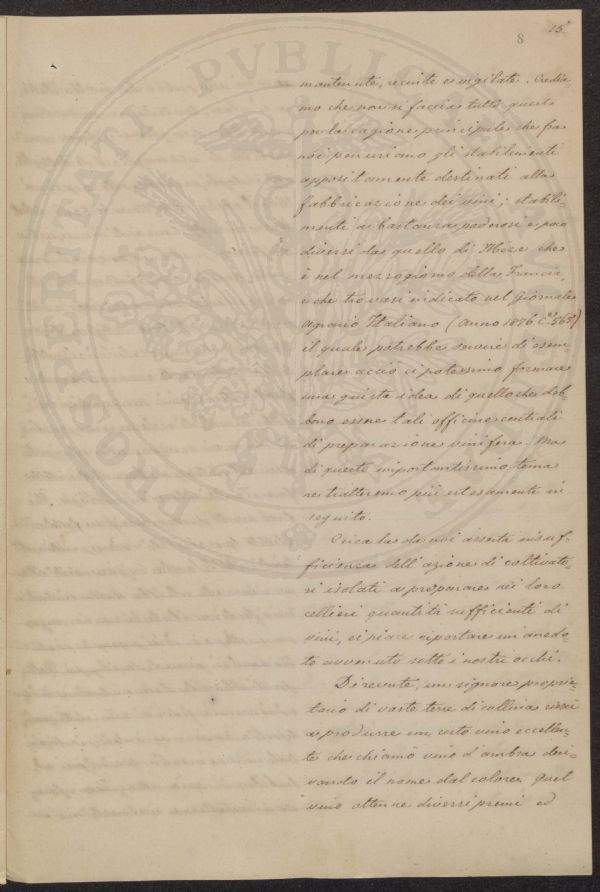 8 15
mantenute, riunite e vigilate. Credia-
mo che non si faccia tutto questo
per la cagione principale che fra
noi penuriano gli stabilimenti
appositamente destinati alla
fabbricazione dei vini; stabili-
menti abbastanza poderosi e poco
diversi da quello di Mèze che
è nel mezzogiorno della Francia,
e che trovasi indicato nel Giornale
Agrario Italiano (Anno 1876 C. 565)
il quale potrebbe servire di esem-
plare acciò ci potessimo formare
una giusta idea di quello che deb-
bono essere tali officine centrali
di preparazione vinifera. Ma
di questo importantissimo tema
ne tratteremo più estesamente in
seguito.
Circa la da noi asserta insuf-
ficienza dell'azione di coltivato-
ri isolati a preparare nei loro
cellieri quantità sufficienti di
vini, ci piace riportare un anedo-
to avvenuto sotto i nostri occhi.
Di recente, un signore proprie-
tario di vaste terre di collina riescì
a produrre un certo vino eccellen-
te che chiamò vino d'ambra deri-
vando il nome dal colore. Quel
vino ottenne diversi premi ed
PROSPERITATI PVBLICAE